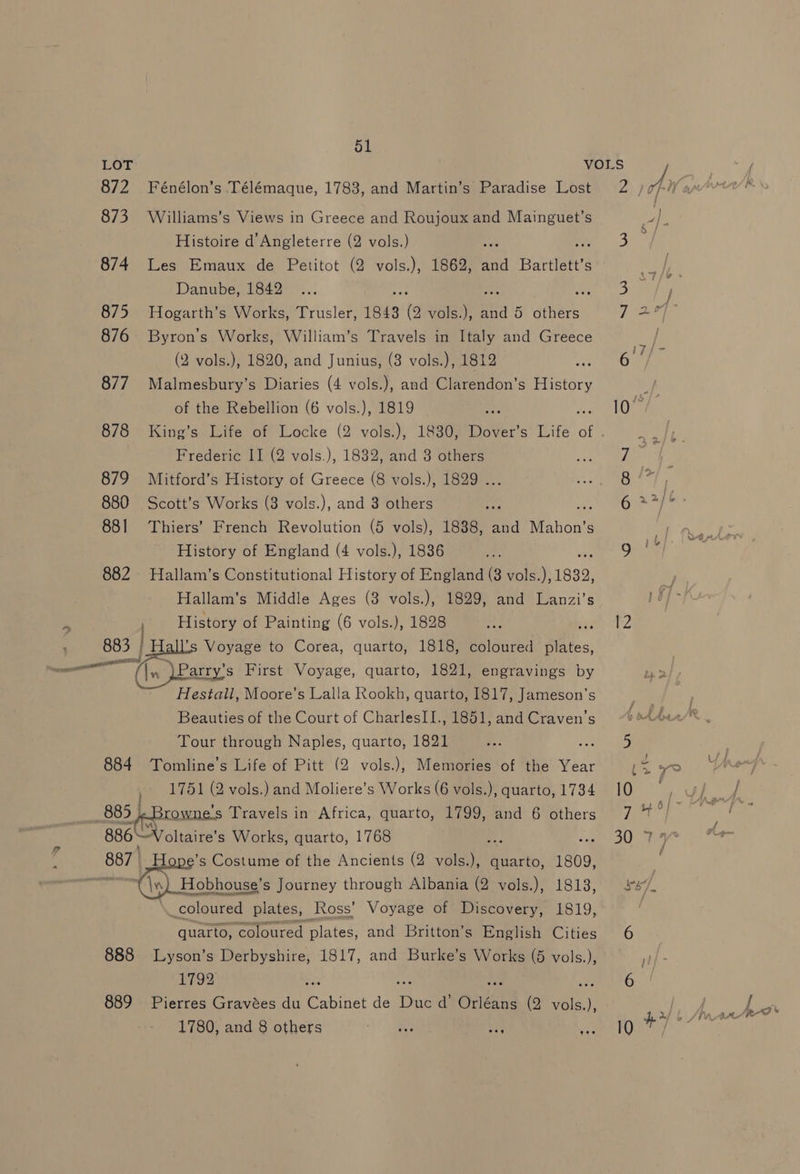 51
LOT VOLS
872 Fénélon's Télémaque, 1783, and Martin's Paradise Lost 2
873 Williams's Views in Greece and Roujoux and Mainguet's
Histoire d'Angleterre (2 vols.) ... ... 3
874 Les Emaux de Petitot (2 vols.), 1862, and Bartlett's
Danube, 1842 ... ... ... ... 3
875 Hogarth's Works, Trusler, 1843 (2 vols.), and 5 others 7
876 Byron's Works, William's Travels in Italy and Greece
(2 vols.), 1820, and Junius, (3 vols.), 1812 ... 6
877 Malmesbury's Diaries (4 vols.), and Clarendon's History
of the Rebellion (6 vols.), 1819 ... ... 10
878 King's Life of Locke (2 vols.), 1830, Dover's Life of
Frederic II (2 vols.), 1832, and 3 others ... 7
879 Mitford's History of Greece (8 vols.), 1829 ... ... 8
880 Scott's Works (3 vols.), and 3 others ... ... 6
881 Thiers' French Revolution (5 vols), 1838, and Mahon's
History of England (4 vols.), 1836 ... ... 9
882 Hallam's Constitutional History of England (3 vols.), 1832,
Hallam's Middle Ages (3 vols.), 1829, and Lanzi's
History of Painting (6 vols.), 1828 ... ... 12
883 Hall's Voyage to Corea, quarto, 1818, coloured plates,
Parry's First Voyage, quarto, 1821, engravings by
Hestall, Moore's Lalla Rookh, quarto, 1817, Jameson's
Beauties of the Court of CharlesII., 1851, and Craven's
Tour through Naples, quarto, 1821 ... ... 5
884 Tomline's Life of Pitt (2 vols.), Memories of the Year
1751 (2 vols.) and Moliere's Works (6 vols.), quarto, 1734 10
885 Browne's Travels in Africa, quarto, 1799, and 6 others 7
886 Voltaire's Works, quarto, 1768 ... ... 30
887 Hope's Costume of the Ancients (2 vols.), quarto, 1809,
Hobhouse's Journey through Albania (2 vols.), 1813,
coloured plates, Ross' Voyage of Discovery, 1819,
quarto, coloured plates, and Britton's English Cities 6
888 Lyson's Derbyshire, 1817, and Burke's Works (5 vols.),
1792 ... ... ... ... 6
889 Pierres Gravées du Cabinet de Duc d' Orléans (2 vols.),
1780, and 8 others ... ... ... 10